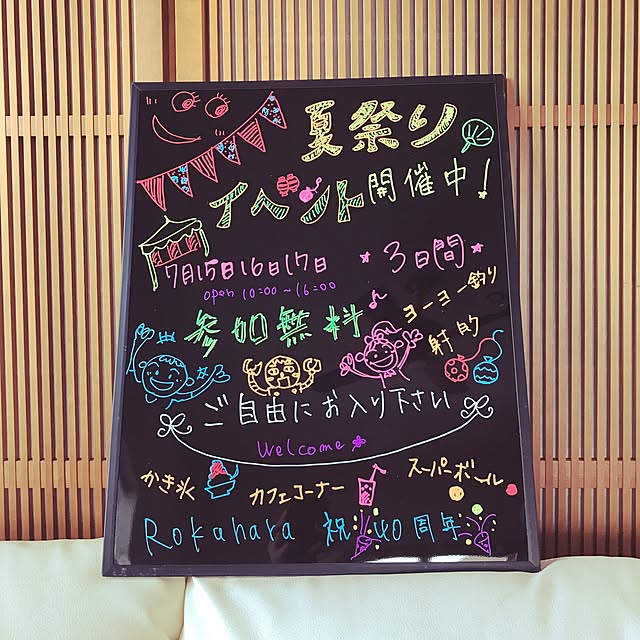 夏祭り
イベント開催中!
7月15日16日17日 3日間
open 10:00〜16:00
参加無料♪
ヨーヨー釣り
射的
ご自由にお入り下さい
Welcome
かき氷
カフェコーナー
スーパーボール
Rokahara 祝 40周年